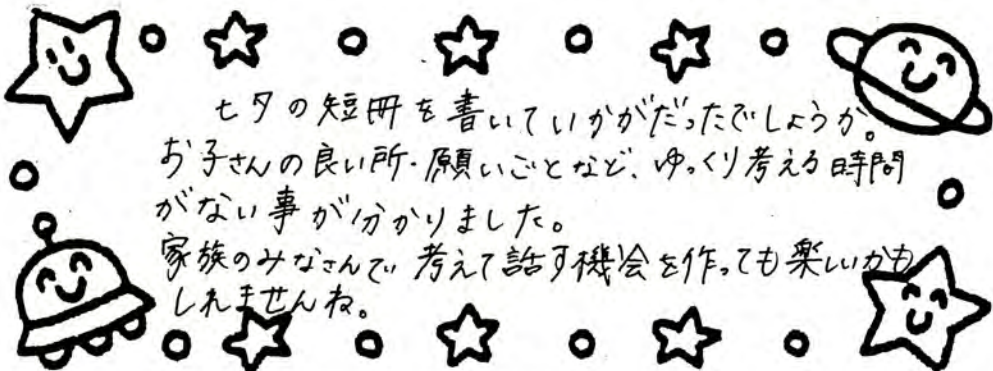 七夕の短冊を書いていかがだったでしょうか。
お子さんの良い所・願いごとなど、ゆっくり考える時間
がない事が分かりました。
家族のみなさんで、考えて話す機会を作っても楽しいかも
しれませんね。